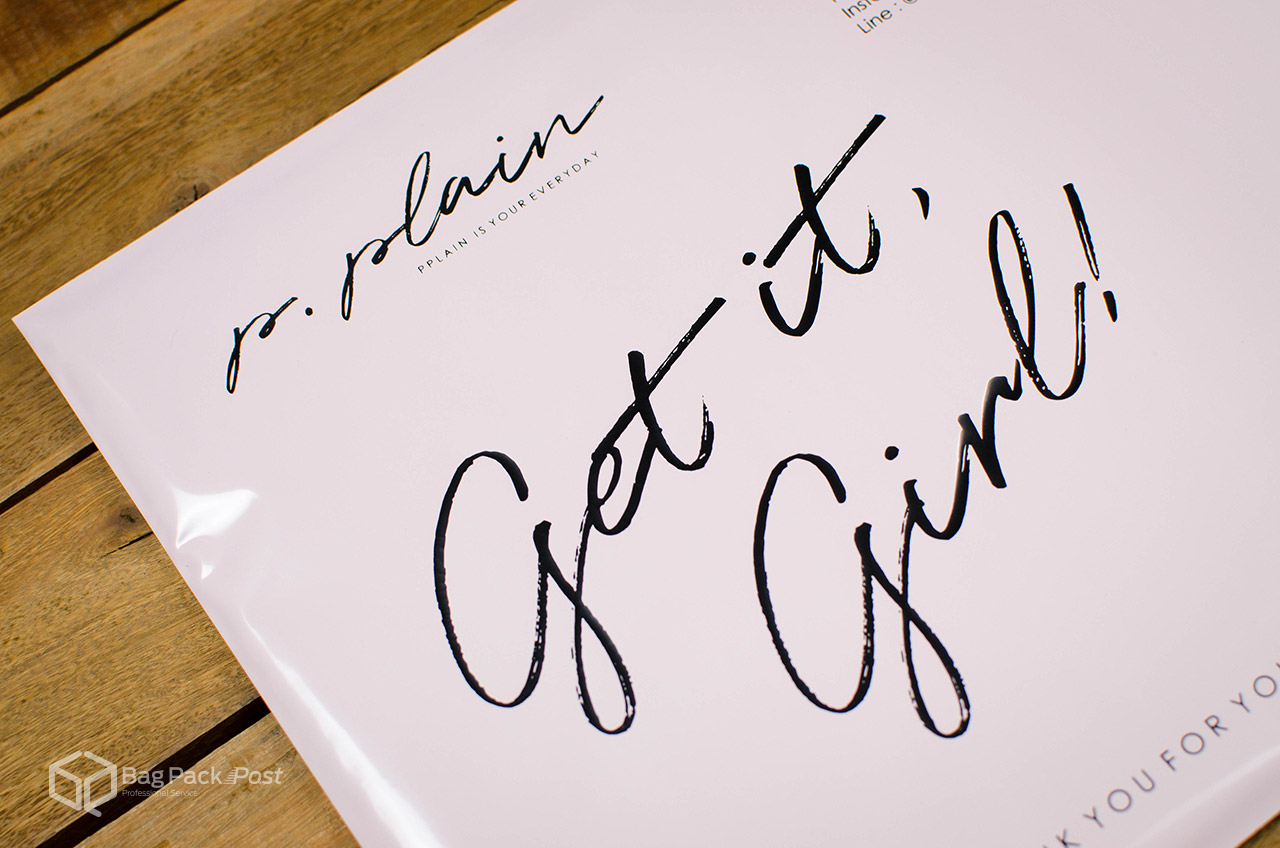 Line :
p. plain
PPLAIN IS YOUR EVERYDAY
Get it,
Girl!
YOU FOR
Bag Pack Post
Professional Service